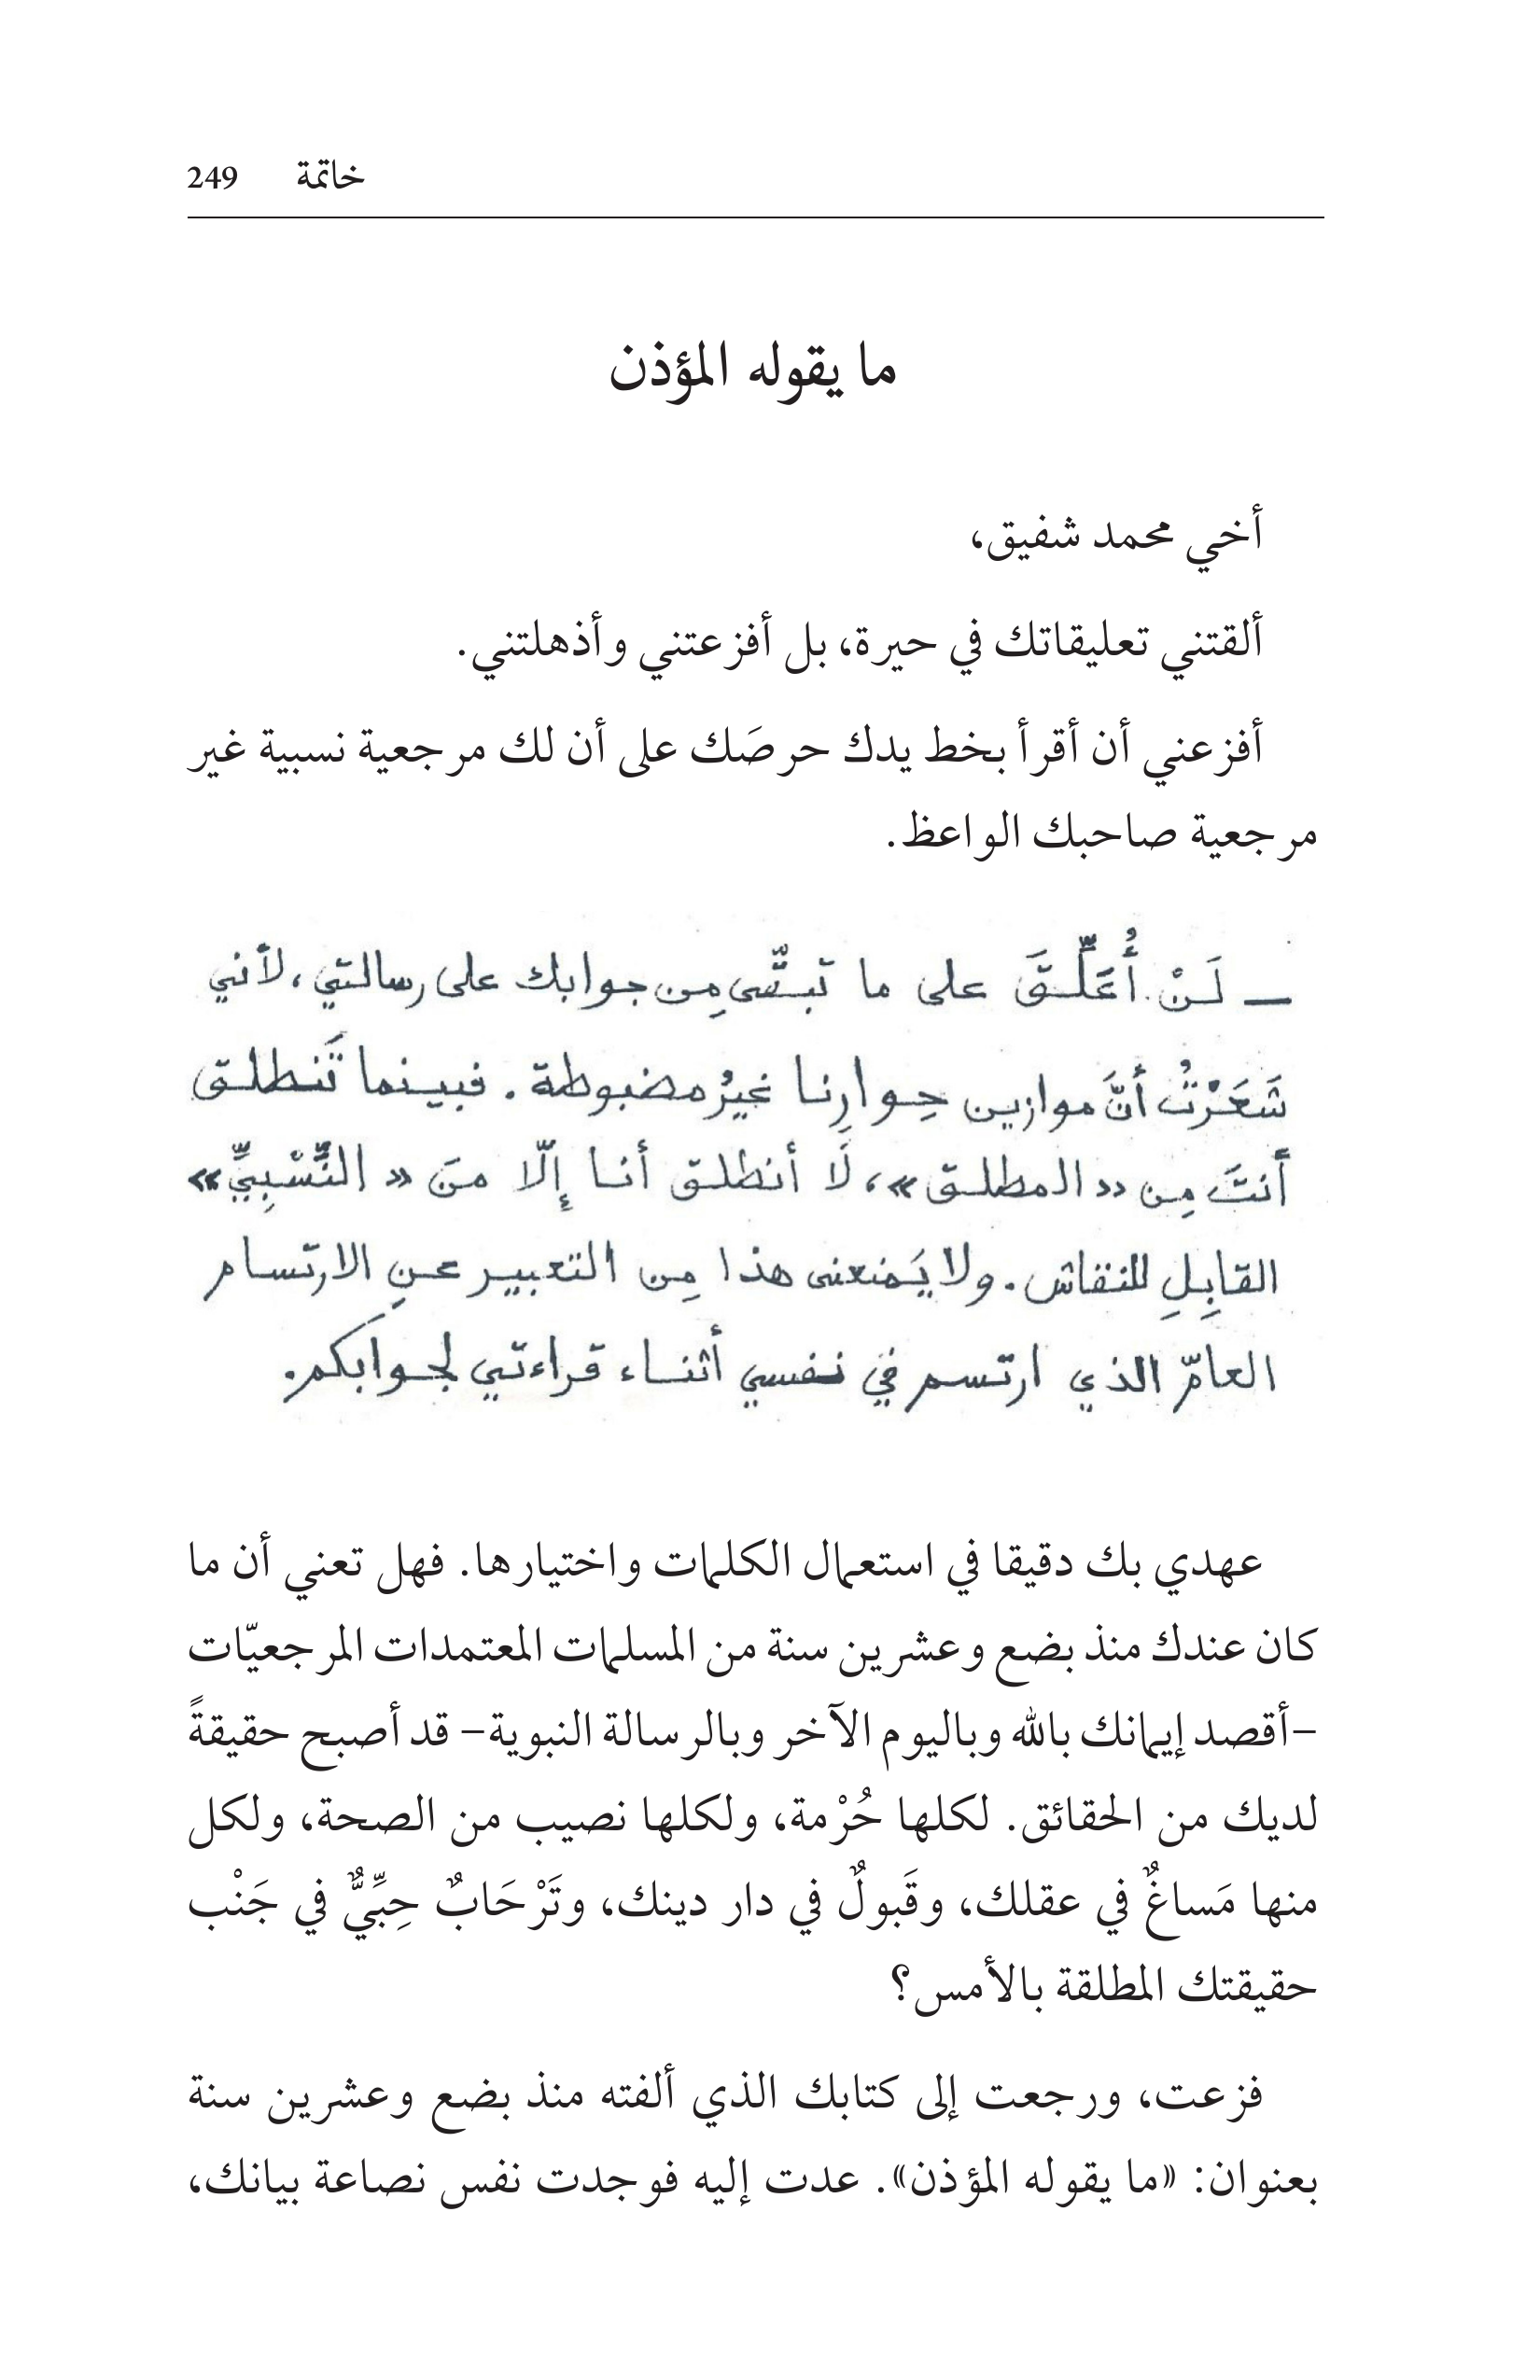 خاتمة 249
ما يقوله المؤذن
أخي محمد شفيق،
ألقتني تعليقاتك في حيرة، بل أفزعتني وأذهلتني.
أفزعني أن أقرأ بخط يدك حرصَك على أن لك مرجعية نسبية غير
مرجعية صاحبك الواعظ.
– لَنْ أُعَلِّقَ على ما تبقّى مِن جوابك على رسالتي، لأني
شَعَرْتُ أنَّ موازين حِوارِنا غيرُ مضبوطة. فبينما تَنطلق
أنتَ مِن «المطلق»، لَا أنطلق أنا إلّا منَ «النِّسْبِيِّ»
القابِلِ للنقاش. ولا يَمنعنى هذا مِن التعبير عنِ الارتسام
العامّ الذي ارتسم في نفسي أثناء قراءتي لجوابكم.
عهدي بك دقيقا في استعمال الكلمات واختيارها. فهل تعني أن ما
كان عندك منذ بضع وعشرين سنة من المسلمات المعتمدات المرجعيّات
-أقصد إيمانك بالله وباليوم الآخر وبالرسالة النبوية- قد أصبح حقيقةً
لديك من الحقائق. لكلها حُرْمة، ولكلها نصيب من الصحة، ولكل
منها مَساغٌ في عقلك، وقَبولٌ في دار دينك، وتَرْحَابٌ حِبِّيٌّ في جَنْب
حقيقتك المطلقة بالأمس؟
فزعت، ورجعت إلى كتابك الذي ألفته منذ بضع وعشرين سنة
بعنوان: «ما يقوله المؤذن». عدت إليه فوجدت نفس نصاعة بيانك،